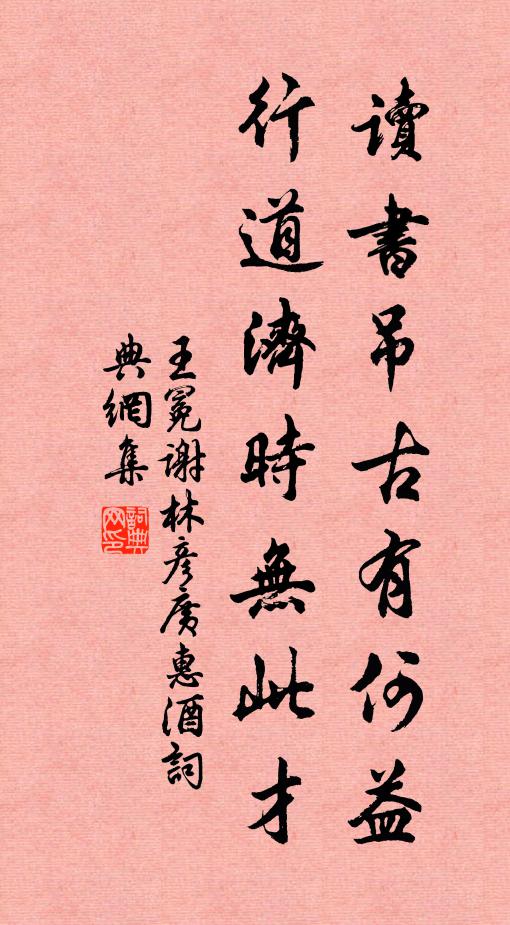 讀書吊古有何益
行道濟時無此才
王冕謝林彦廣惠酒詞
典網集
詞典
网印